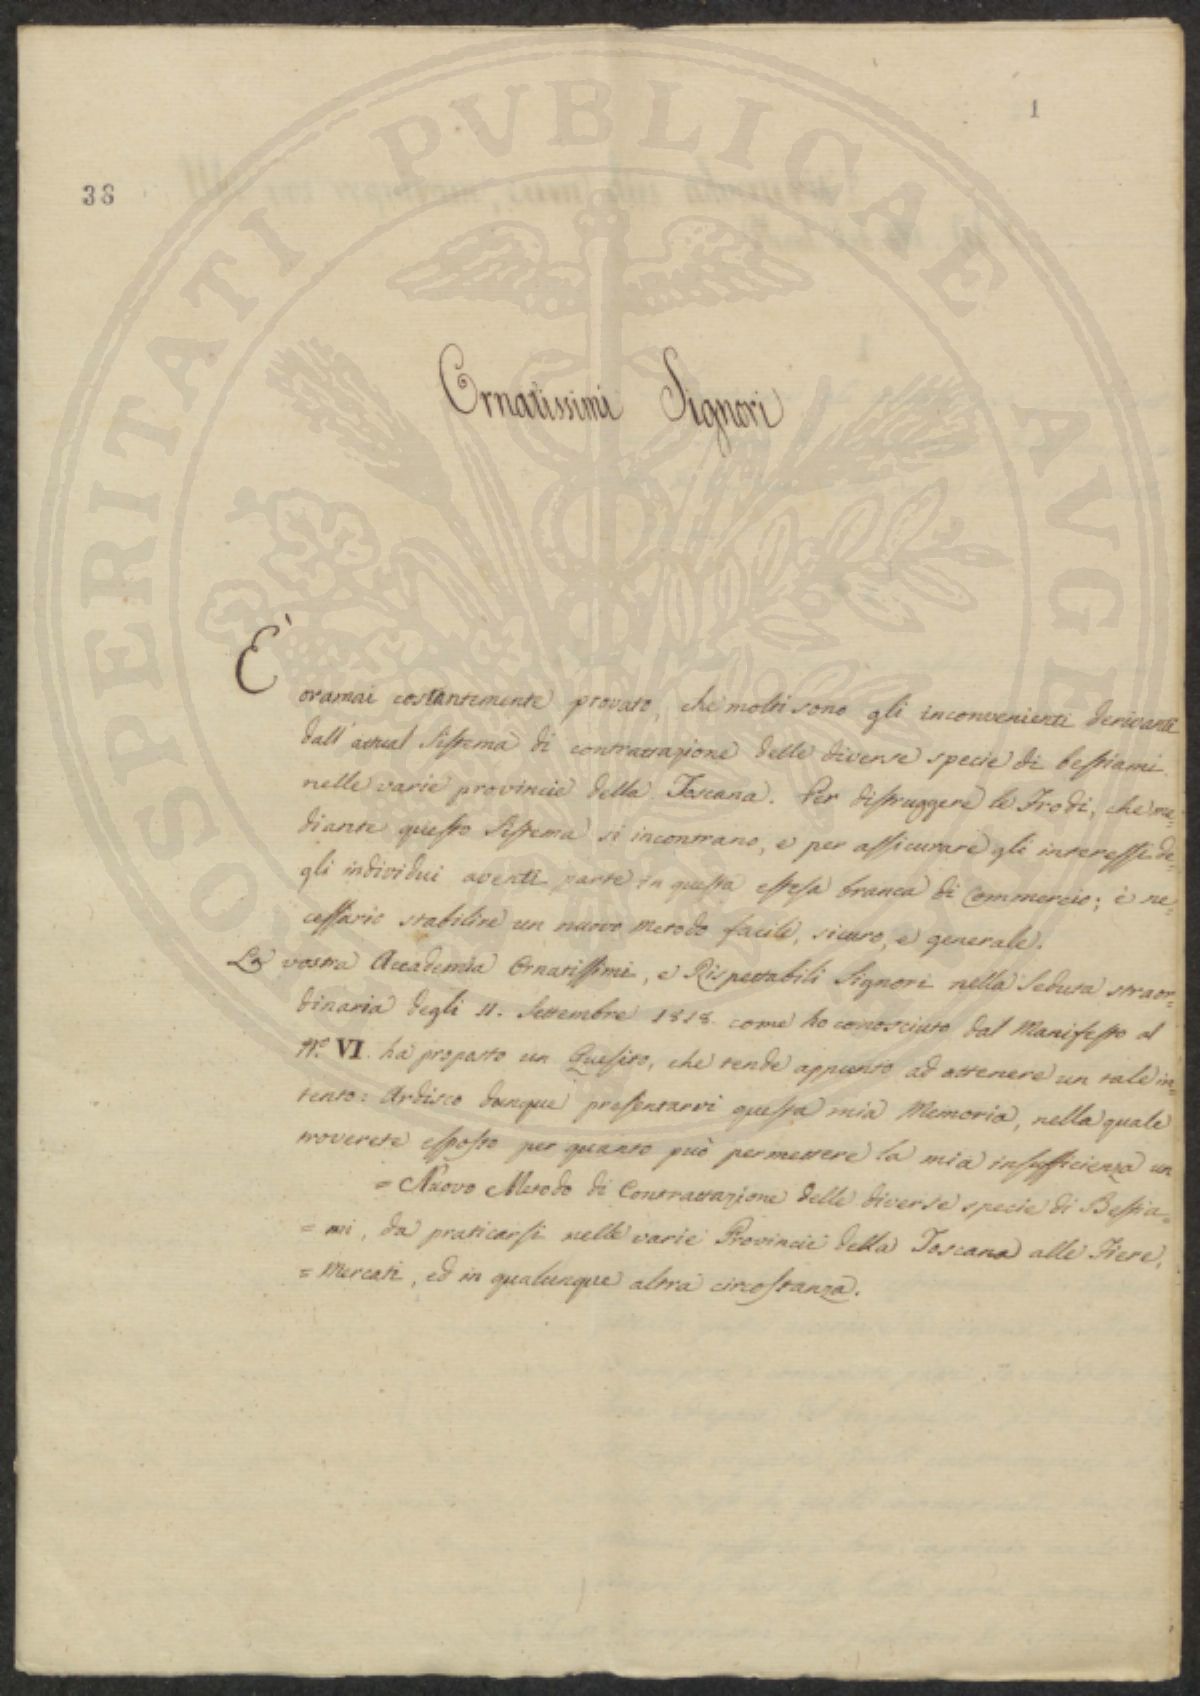 1
38
PROSPERITATI PVBLICAE AVGE
Ornatissimi Signori
È
oramai costantemente provato, che molti sono gli inconvenienti derivanti
dall' actual Sistema di contrattazione delle diverse specie di bestiami
nelle varie provincie della Toscana. Per distruggere le Frodi, che me=
diante questo Sistema si incontrano, e per assicurare gli interessi de=
gli individui aventi parte in questa estesa branca di Commercio; è ne=
cessario stabilire un nuovo metodo facile, sicuro, e generale.
La vostra Accademia Ornatissimi, e Rispettabili Signori nella Seduta straor=
dinaria degli 11. Settembre 1818. come ho conosciuto dal Manifesto al
N.° VI. ha proposto un Quesito, che tende appunto ad ottenere un tale in=
tento: Ardisco dunque presentarvi questa mia Memoria, nella quale
troverete esposto per quanto può permettere la mia insufficienza un
= Nuovo Metodo di Contrattazione delle diverse specie di Bestia=
= mi, da praticarsi nelle varie Provincie della Toscana alle Fiere,
= Mercati, ed in qualunque altra circostanza.